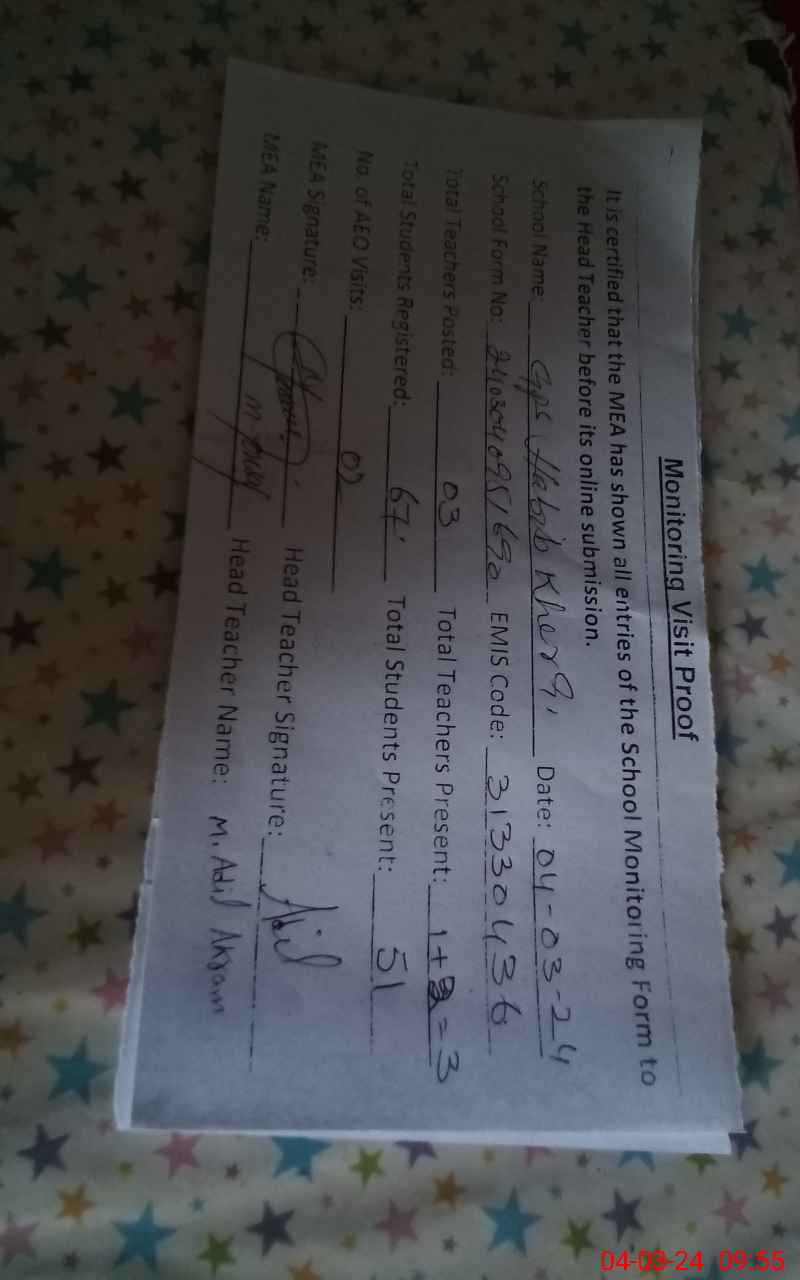 Monitoring Visit Proof
It is certified that the MEA has shown all entries of the School Monitoring Form to
the Head Teacher before its online submission.
School Name: GPS Habib Khera, Date: 04-03-24
School Form No: EMIS Code: 31330436
Total Teachers Posted: 03 Total Teachers Present: 1+2=3
Total Students Registered: 67 Total Students Present: 51
No. of AEO Visits: 02
MEA Signature: Head Teacher Signature: Adil
MEA Name: Head Teacher Name: M. Adil Akram
04-03-24 09:55